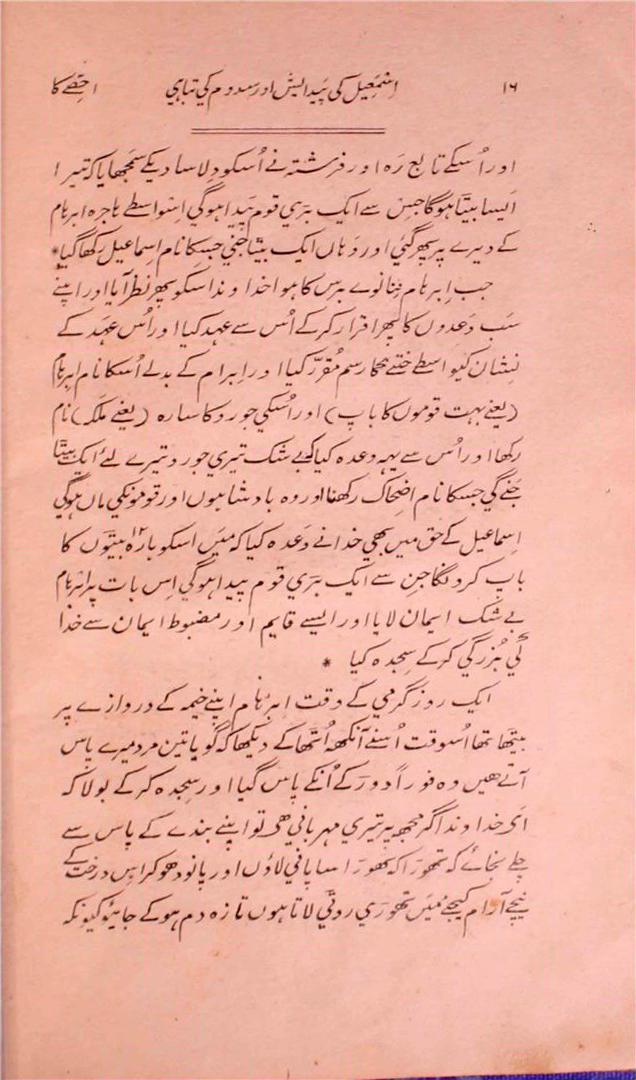 ۱۶ اسمٰعیل کی پَیدایش اور سدوم کی تباہی ۱ حِصّے کا
اور اُسکے تابِع رَہ اور فرِشتہ نے اُسکو دِلاسا دیکے سَمجھایا کہ تیرا
اَیسا بیٹا ہوگا جِس سے ایک بڑي قوم پَیدا ہوگي اِسواسطے ہاجرہ ابرہام
کے ڈیرے پر پھر گئي اور وَہاں ایک بیٹا جَني جِسکا نام اِسماعیل رکھا گیا *
جب اِبرہام نِنانوے برس کا ہوا خداوند اسکو پھر نظر آیا اور اپنے
سَب وَعدوں کا پھر اِقرار کرکے اُس سے عہد کیا اور اُس عہد کے
نِشان کیواسطے ختنے کا رسم مُقرّر کیا اور اِبرام کے بدلے اُسکا نام اِبرہام
(یعنے بہت قوموں کا باپ) اور اُسکي جورو کا سارہ (یعنے مَلکہ) نام
رکھا اور اُس سے یہہ وعدہ کیا کہ بے شک تیري جورو تیرے لئے ایک بیٹا
جَنے گي جِسکا نام اِضحاک رکھنا اور وہ بادشاہوں اور قومونکي ماں ہوگي
اِسماعیل کے حق میں بھي خدا نے وَعدہ کیا کہ مَیں اسکو بارہ ۱۲ بیٹوں کا
باپ کرونگا جِن سے ایک بَڑي قوم پیدا ہوگي اِس بات پر اِبرہام
بے شک اِیمان لایا اور ایسے قایم اور مضبوط اِیمان سے خدا
کي بُزرگي کرکے سِجدہ کیا *
ایک روز گرمي کے وقت اِبرہام اپنے خیمہ کے دروازے پر
بیٹھا تھا اُسوقت اُسنے آنکھہ اُٹھا کے دیکھا کہ گویا تین مرد میرے پاس
آتے هیں وہ فوراً دوڑ کے اُنکے پاس گیا اور سِجدہ کر کے بولا کہ
اَي خداوند اگر مُجھہ پر تیري مہرباني هي تو اپنے بندے کے پاس سے
چلے نجائے کہ تھوڑا کہ تھوڑا سا پاني لاؤں اور پانو دھو کر اِس درخت کے
نیچے آرام کیجئے مَیں تھوڑي روٹي لاتا ہوں تازہ دم ہو کے جائیو کیونکہ